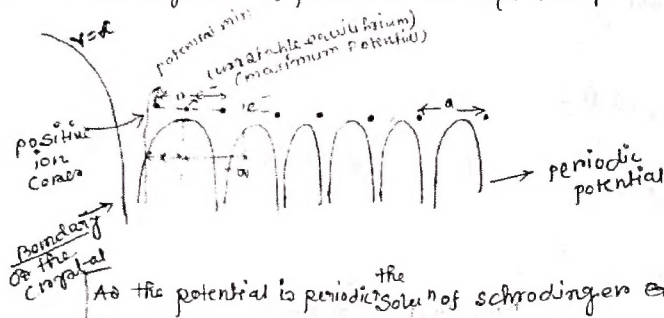 potential min
(unstable equilibrium)
(maximum potential)
v=∞
a
positive
ion
cores
periodic
potential
Boundary
of the
crystal
As the potential is periodic the Solun of schrodinger